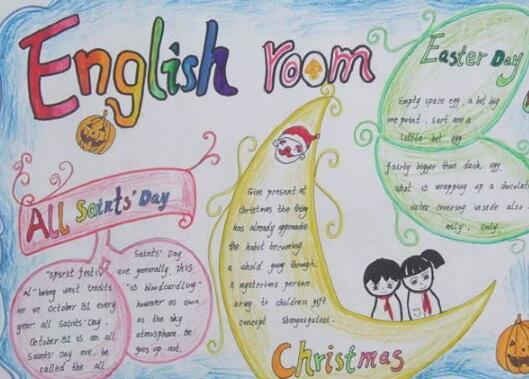 English room
Easter Day
Empty space egg, a bit big
me point, sort are a
little bit egg
fairly bigger than duck egg,
what is wrapping up a chocolate
outer covering inside also
only
All Saints' Day
"spirit festiv
al" being west tradite
on in October 31 every
year all Saints' Day.
October 31 is on all
Saints' Day eve. be
called the all
Saints' Day
eve generally, this
is bloodcurdling"
however as own
as the sky
atmosphere. Be
goes up not.
Give present at
Christmas the thing
has already approximate
the habit becoming
a whold going through.
A mysterious person
bring to children gift
concept
Christmas